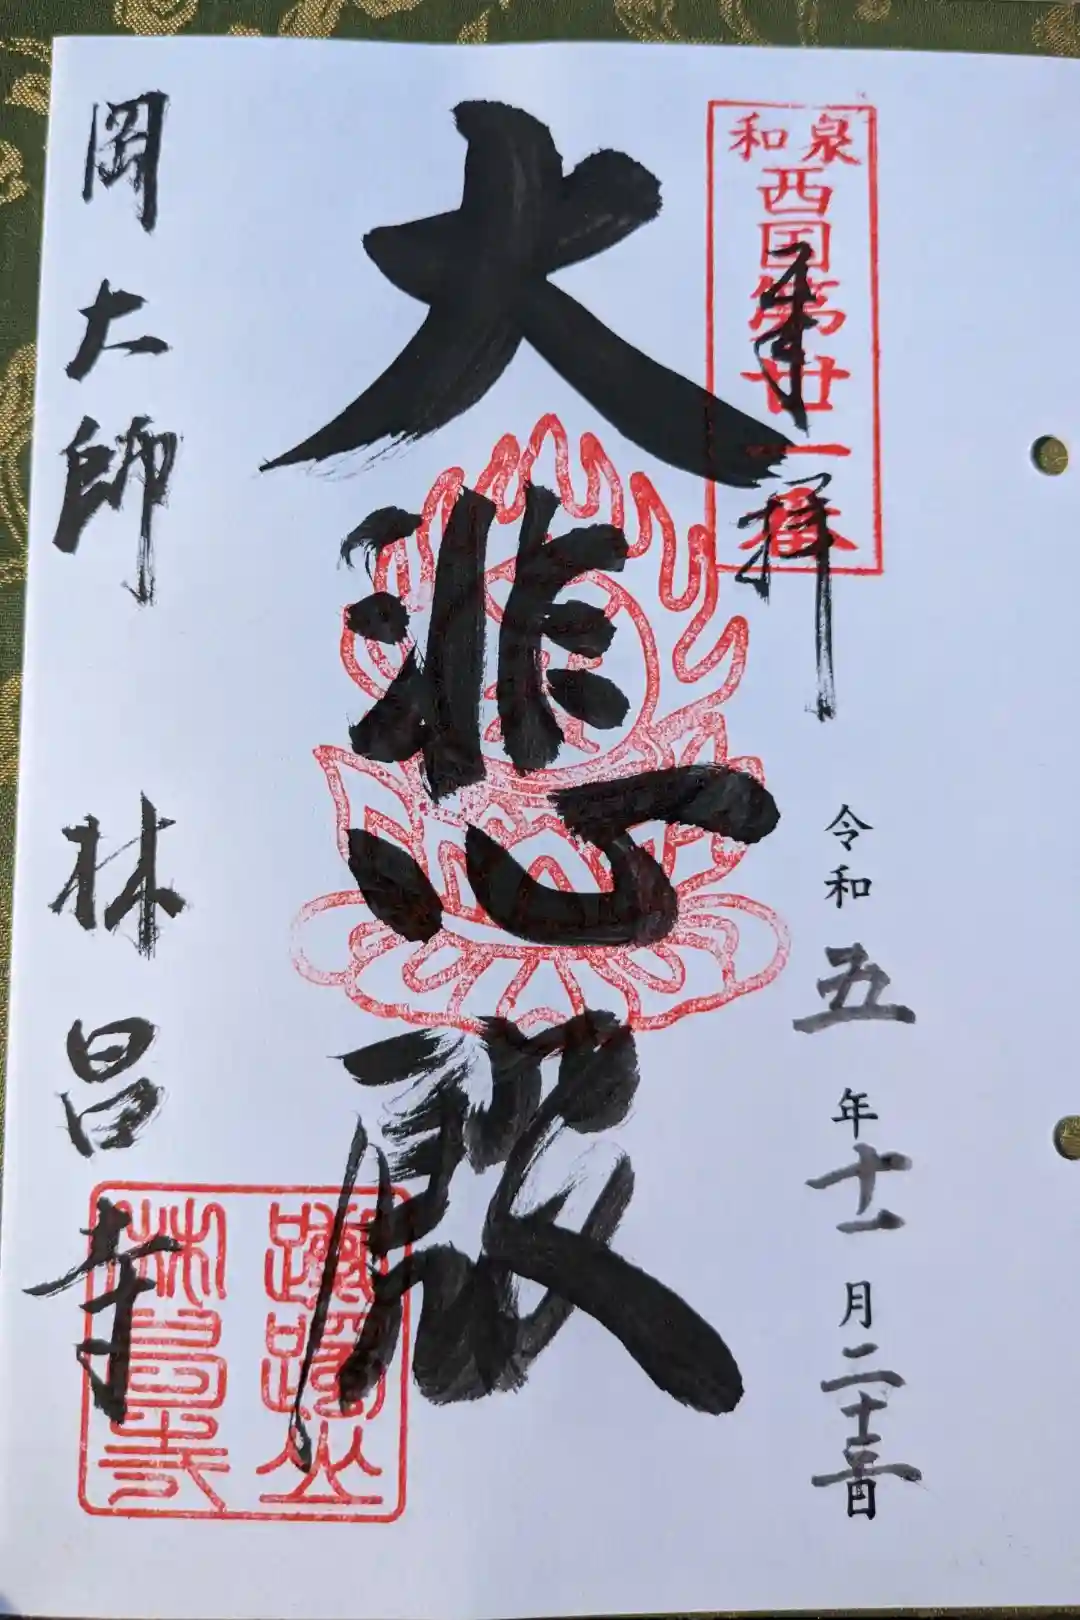 和泉
西国第卅一番
奉拝
令和五年十一月二十三日
大悲殿
岡大師 林昌寺
躑躅山
林昌寺